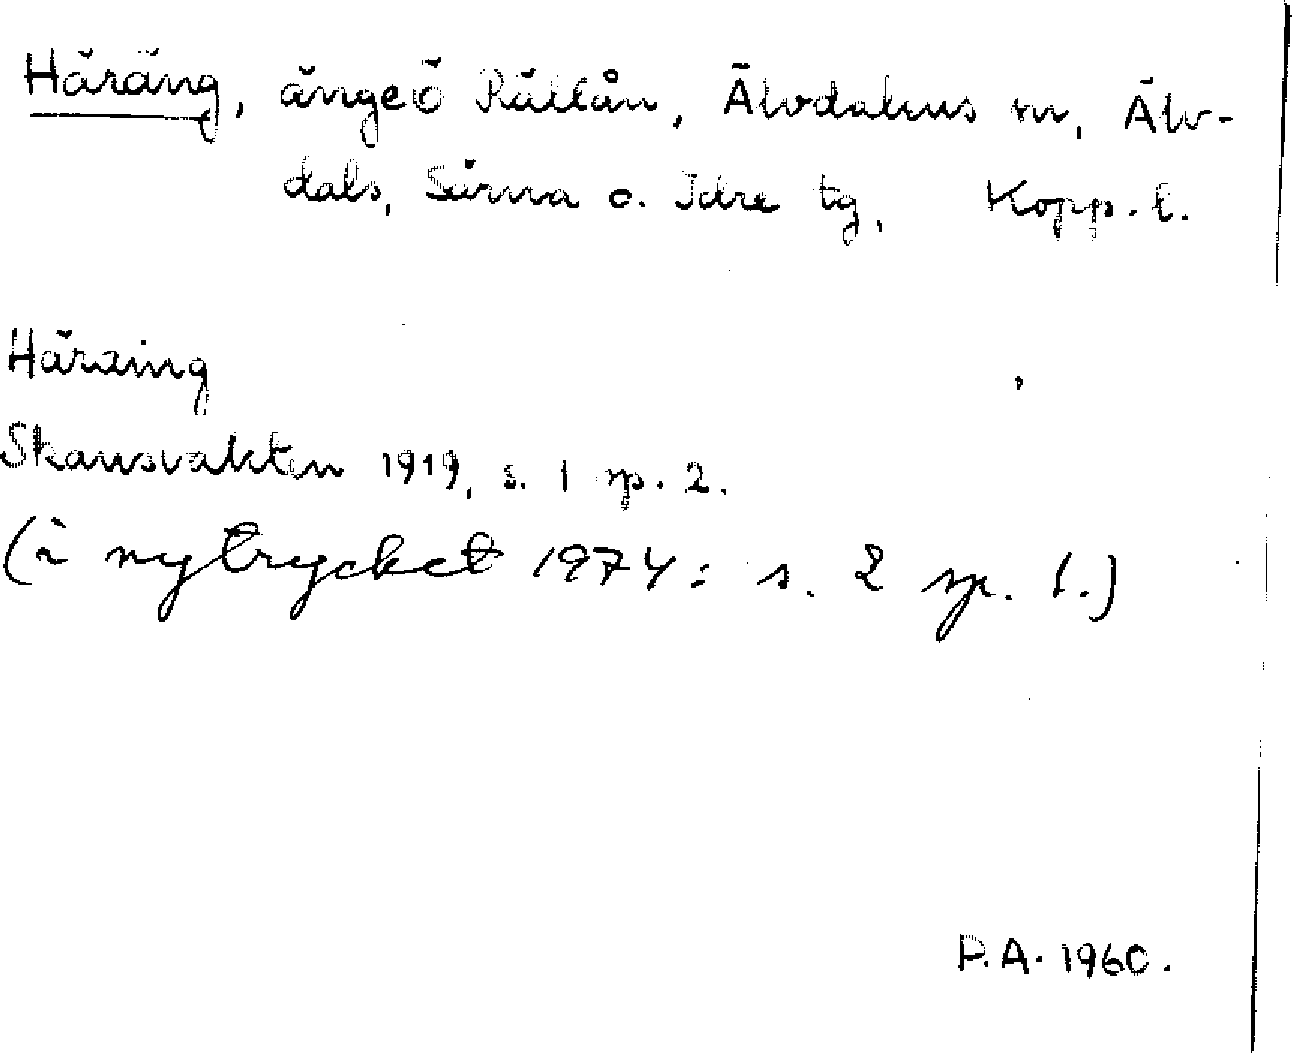 Häräng, änge ö Rällån, Älvdalens sn, Älv-
dals, Särna o. Idre tg, Kopp. l.
Häräing
Skansvakten 1919, s. 1 sp. 2.
(i nytrycket 1974: s. 2 sp. 1.)
P.A. 1960.